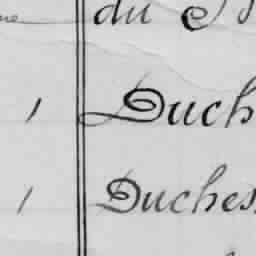 du
1 Duch
1 Duches